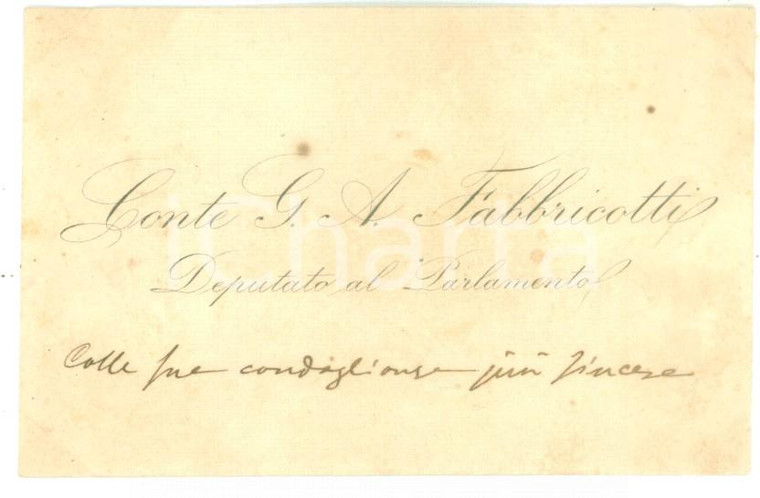 Conte G. A. Fabbricotti
Deputato al Parlamento
Colle sue condoglianze più sincere